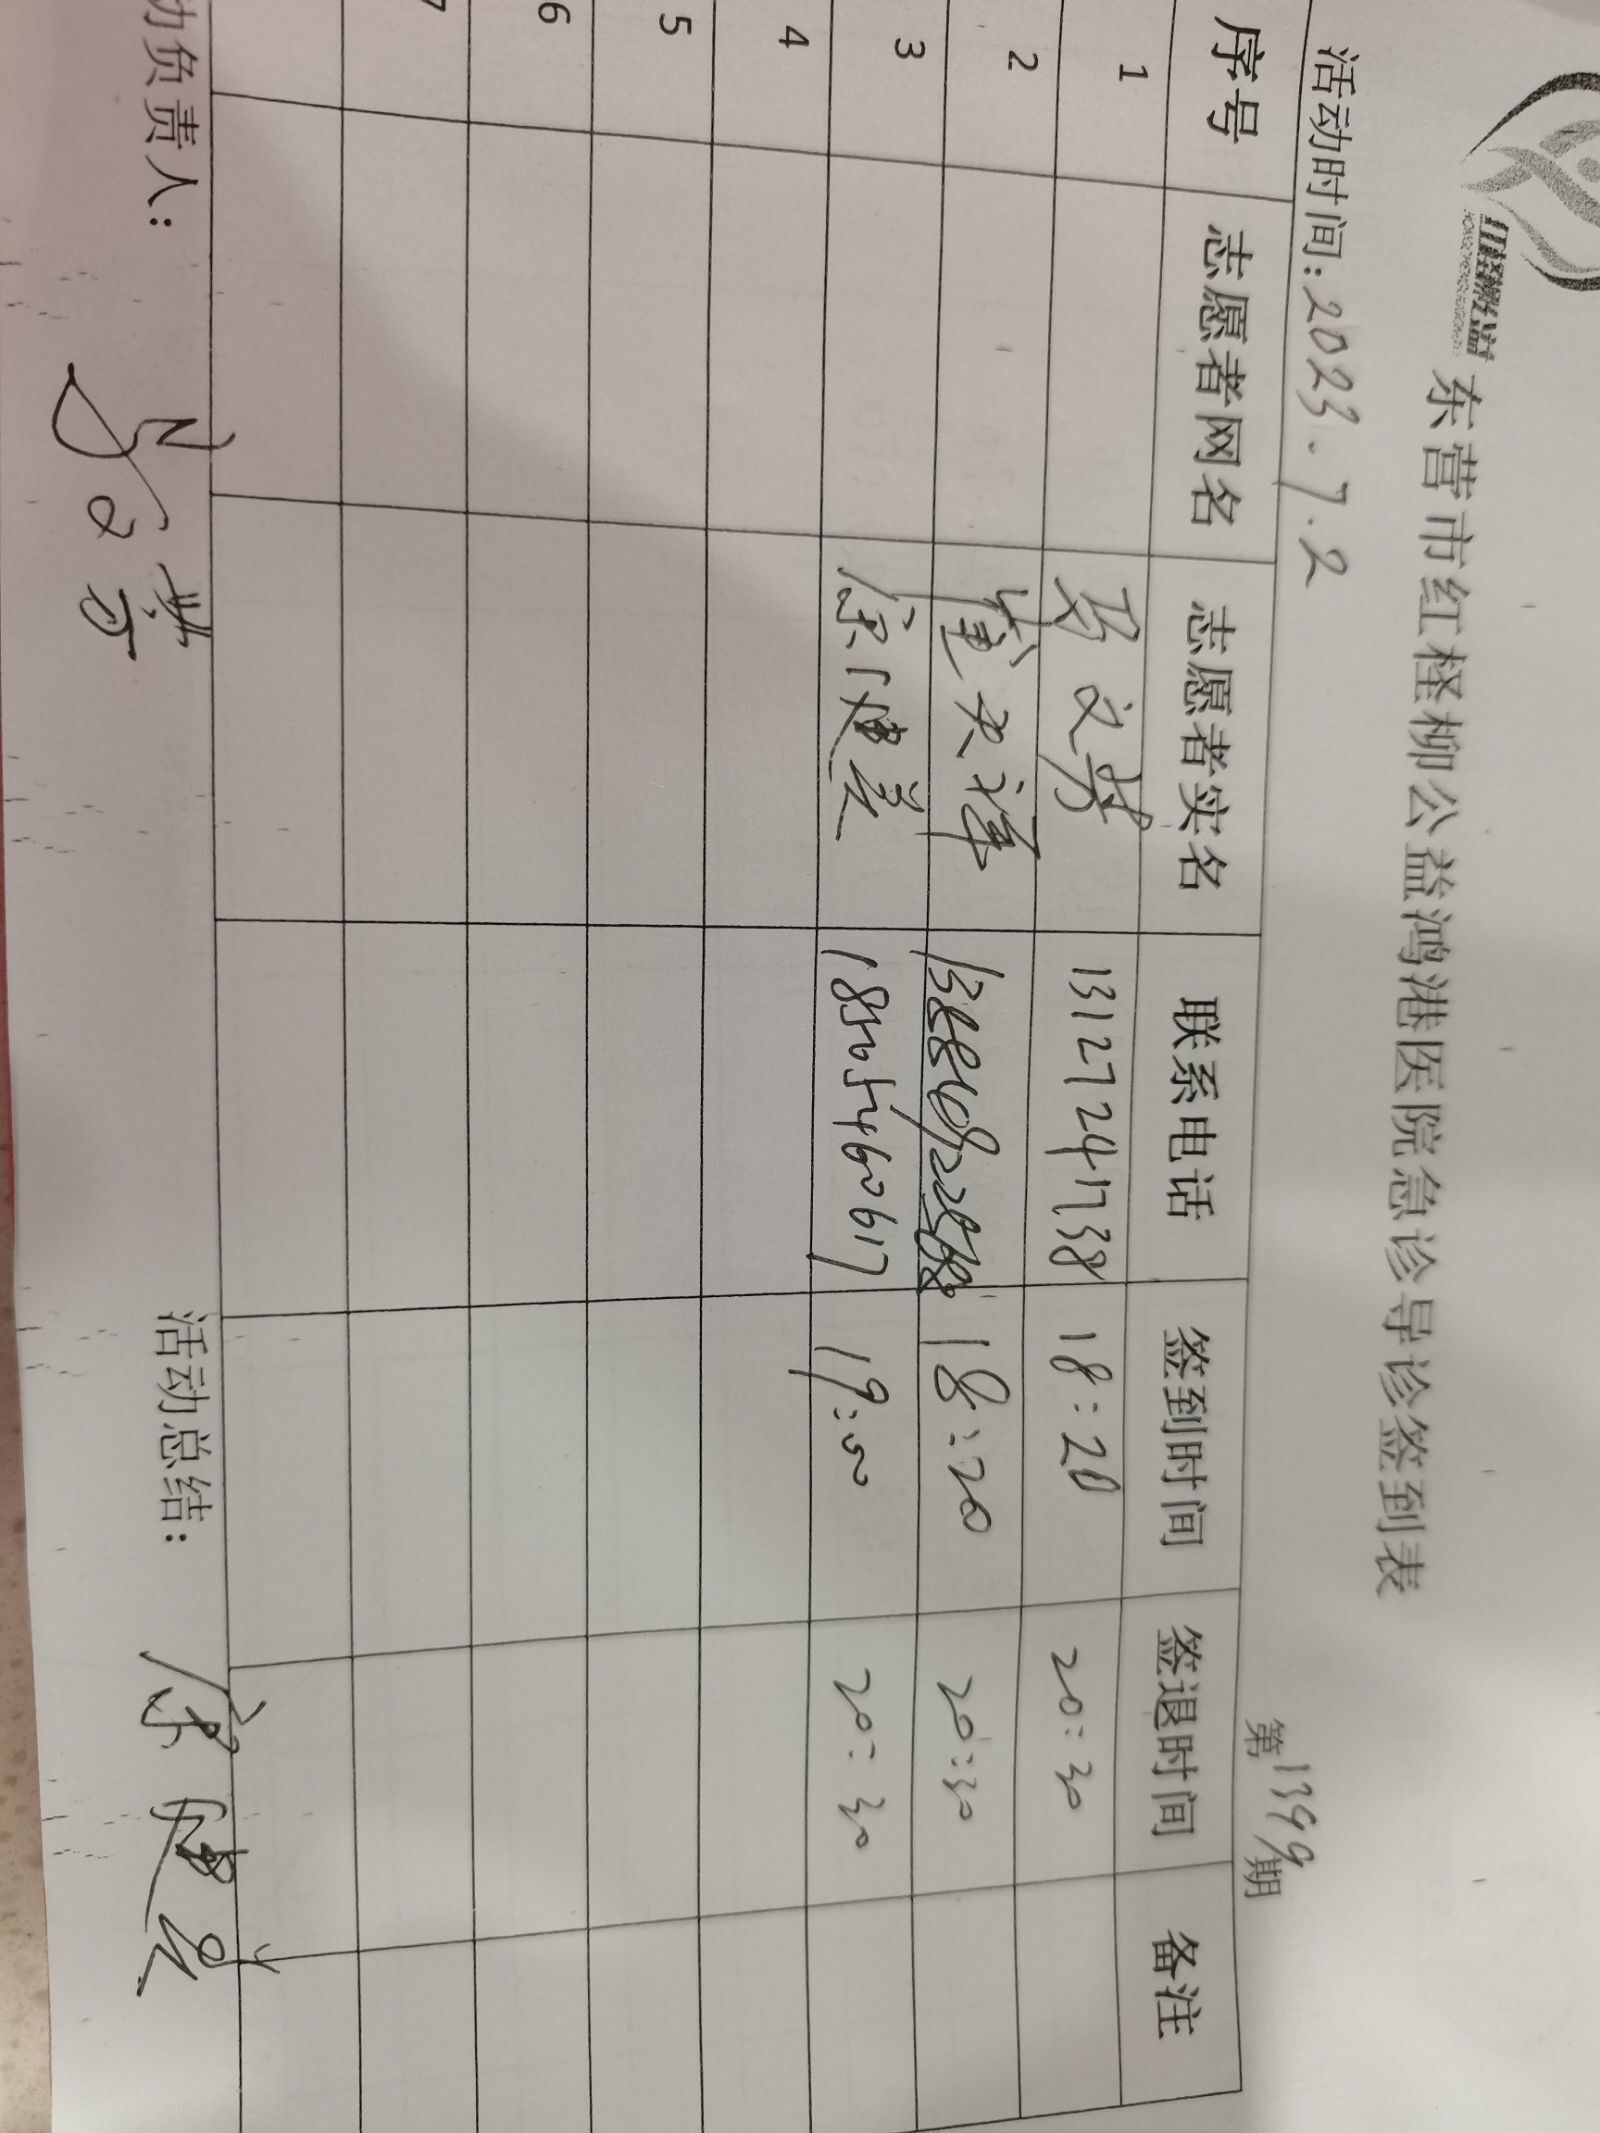 红柽柳公益
东营市红柽柳公益鸿港医院急诊导诊签到表
活动时间:2023.7.2 第1399期
序号 志愿者网名 志愿者实名 联系电话 签到时间 签退时间 备注
1 马文芳 13127241738 18:20 20:30
2 董 18:20 20:30
3 徐健美 18565460617 19:00 20:30
4
5
6
7
动负责人: 活动总结: 徐健美